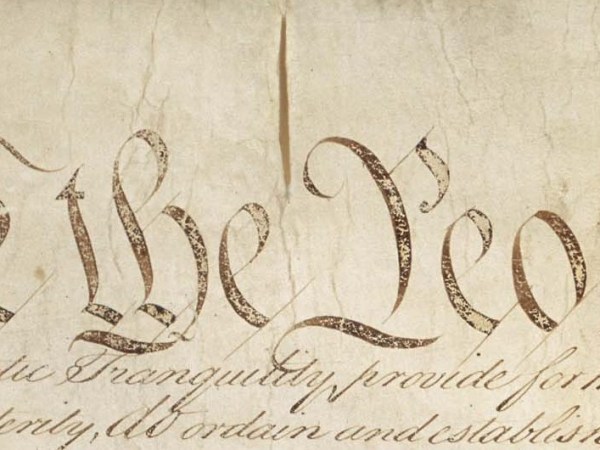 the Peo
Tranquility, provide for
terity, do ordain and establish